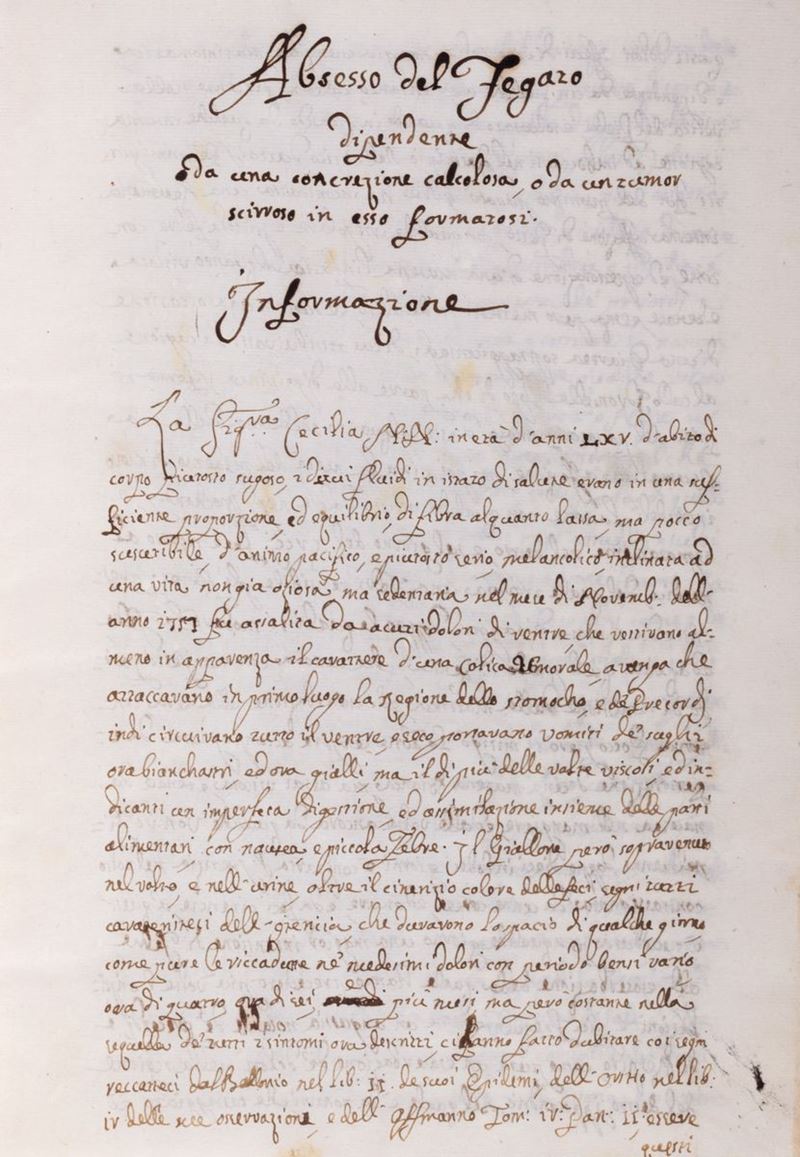 Absesso del Fegato
dipendente
o da una concrezione calcolosa, o da un tumor
scirroso in esso formatosi.
Informazione
La Sig.ra Cecilia N.N: in età d'anni LXV. d'abito di
corpo piutosto sugoso, i di cui fluidi in istato di salute erano in una suf=
ficiente proporzione, ed equilibrio, di fibra alquanto lassa, ma pocco
suscettibile, d'animo pacifico, e piutosto serio, melancolico, inclinata ad
una vita non gia oziosa, ma sedentaria nel mese di Novemb: dell-
anno 1757 fu assalita da acuti dolori di ventre, che vestivano al=
meno in apparenza il carattere d'una Colica Umorale, a tenpa che
attaccavano in primo luogo la Regione dello stomocho, e de Precordj
indi circuivano tutto il ventre, e seco portavano vomiti de sughi
ora bianchastri, ed ora gialli, ma il di piu delle volte viscosi, ed in=
dicanti un imperfetta digestione, ed assimilazione insieme delle parti
alimentari, con nausea, e piccola Febre. Il Giallore però sopravenuto
nel volto, e nell'urine, oltre il cinerizio colore delle feci, segni tutti
caratteristici dell-itericia, che duravono lo spacio di qualche giorno
come pure le riccadute ne medesimi dolori con periodo bensi vario
ora di quatro, ora di sei, più mesi, ma però costante nella
sequella de tutti i sintomi ora descritti, ci fanno fatto dubitare co i segni
reccateci dal Ballonio nel lib: II. de suoi Epidemi, dell' nel lib:
IV delle sue osservazioni, e dell' Offmanno Tom: IV: Part: II: essere
questi